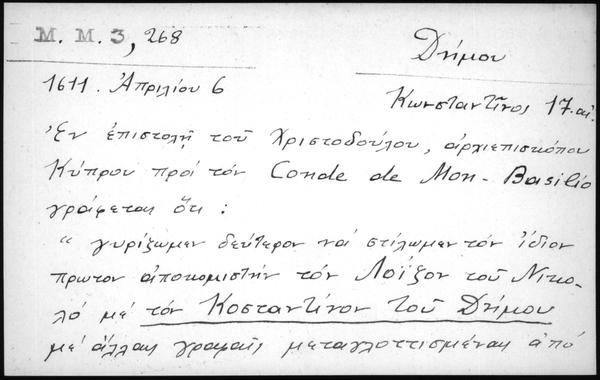 M. M. 3, 268
Δήμου
1611. Ἀπριλίου 6
Κωνσταντῖνος 17. αἰ.
Ἐν ἐπιστολῇ τοῦ Χριστοδούλου, ἀρχιεπισκόπου
Κύπρου πρὸς τὸν Conde de Mon-Basilio
γράφεται ὅτι :
" γυρίζωμεν δεύτερον νά στίλωμεν τόν ἴδιον
πρωτον ἀποκομιστήν τόν Λοΐζον τοῦ Νικο-
λό μέ τόν Κοσταντῖνον τοῦ Δήμου
μέ ἄλλας γραφαῖς μεταγλοττισμένας ἀπό